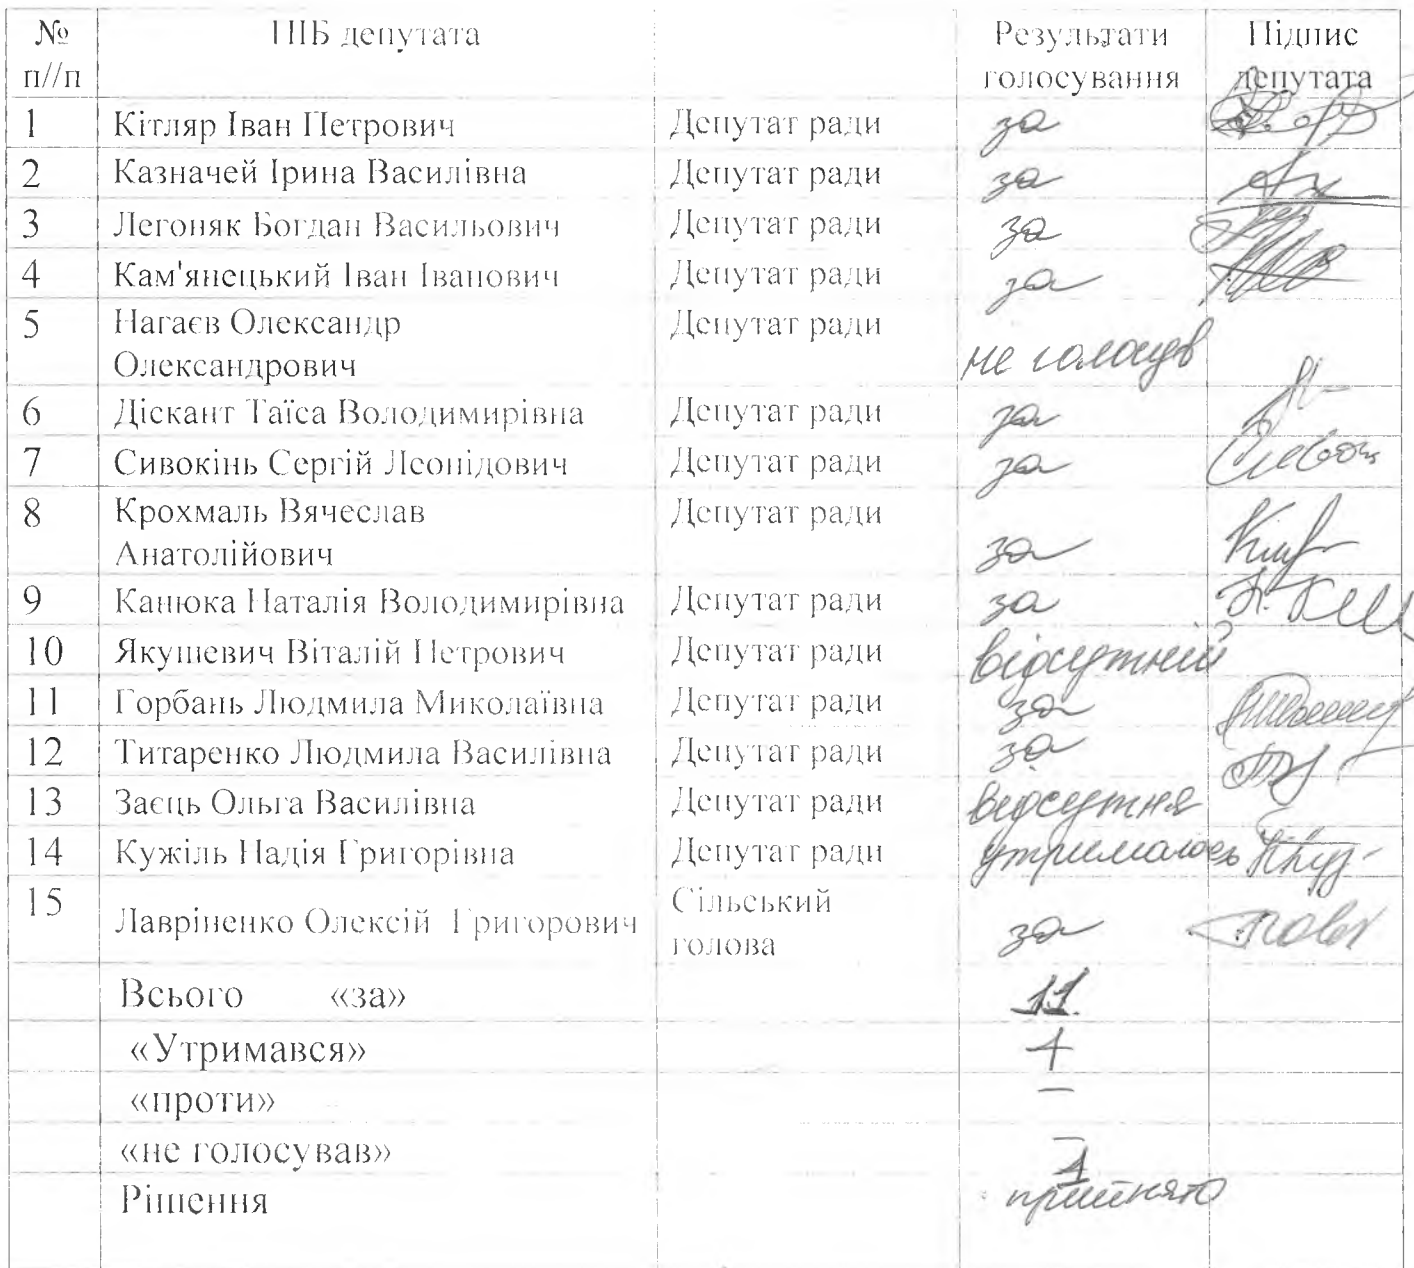 № ПІБ депутата Результати Підпис
п//п голосування депутата
1 Кітляр Іван Петрович Депутат ради за
2 Казначей Ірина Василівна Депутат ради за
3 Легоняк Богдан Васильович Депутат ради за
4 Кам'янецький Іван Іванович Депутат ради за
5 Нагаєв Олександр Депутат ради
Олександрович не голосув
6 Діскант Таїса Володимирівна Депутат ради за
7 Сивокінь Сергій Леонідович Депутат ради за
8 Крохмаль Вячеслав Депутат ради
Анатолійович за
9 Канюка Наталія Володимирівна Депутат ради за
10 Якушевич Віталій Петрович Депутат ради відсутній
11 Горбань Людмила Миколаївна Депутат ради за
12 Титаренко Людмила Василівна Депутат ради за
13 Заєць Ольга Василівна Депутат ради відсутня
14 Кужіль Надія Григорівна Депутат ради утрималась
15 Лавріненко Олексій Григорович Сільський
голова за
Всього «за» 11
«Утримався» 1
«проти» —
«не голосував» 1
Рішення прийнято